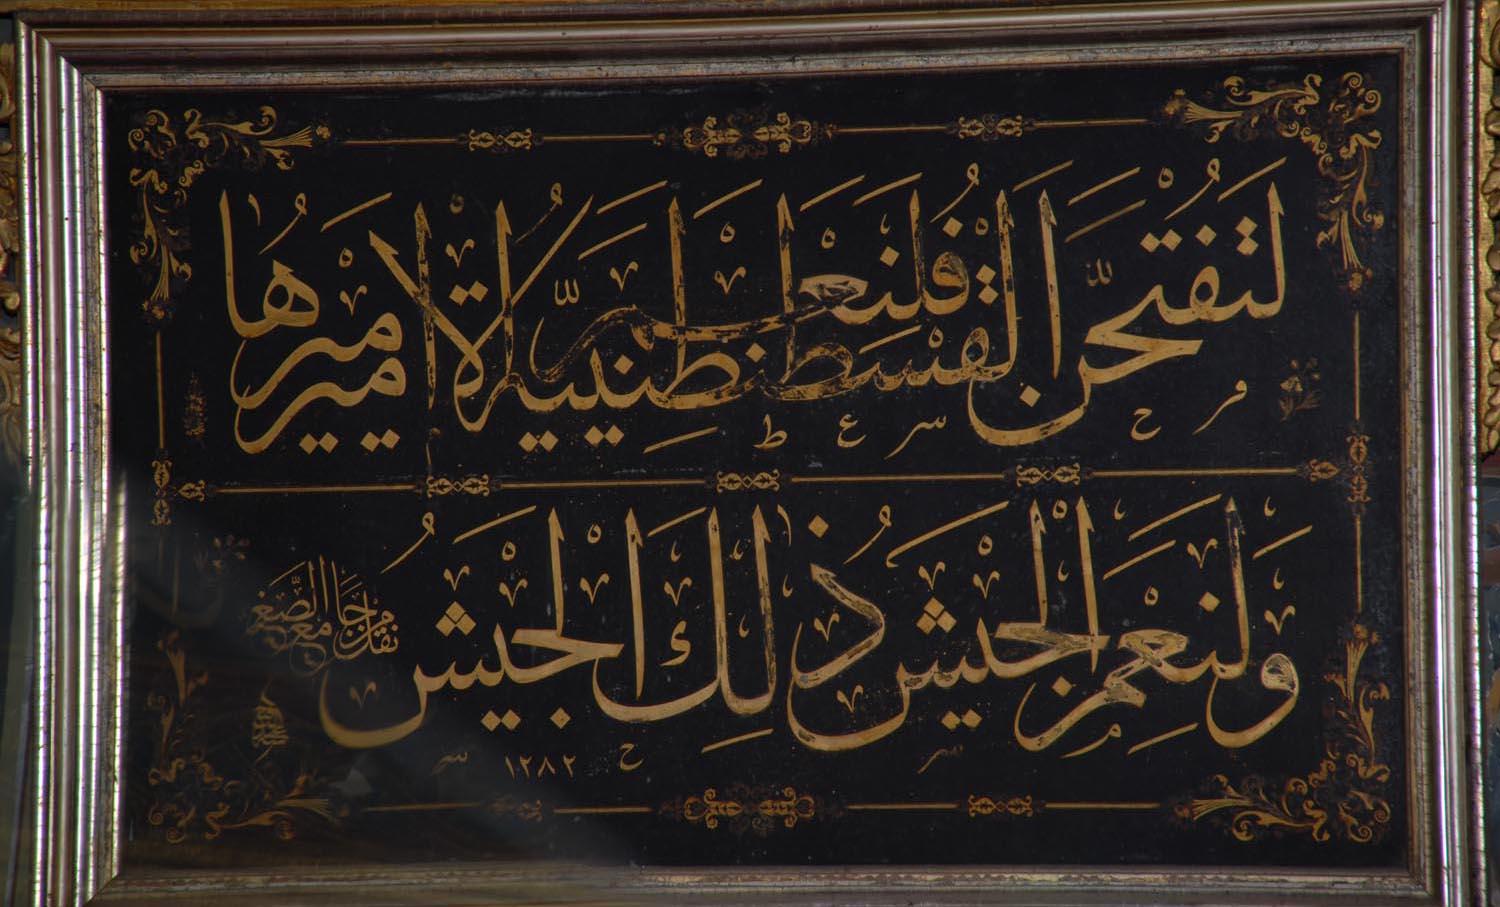 لَتُفْتَحَنَّ القُسْطَنْطِنِيَّةُ فَلَنِعْمَ الاَمِيرُ اَمِيرُهَا
وَلَنِعْمَ الجَيْشُ ذٰلِكَ الجَيْشُ
نقل من جامع الصغير
١٢٨٢